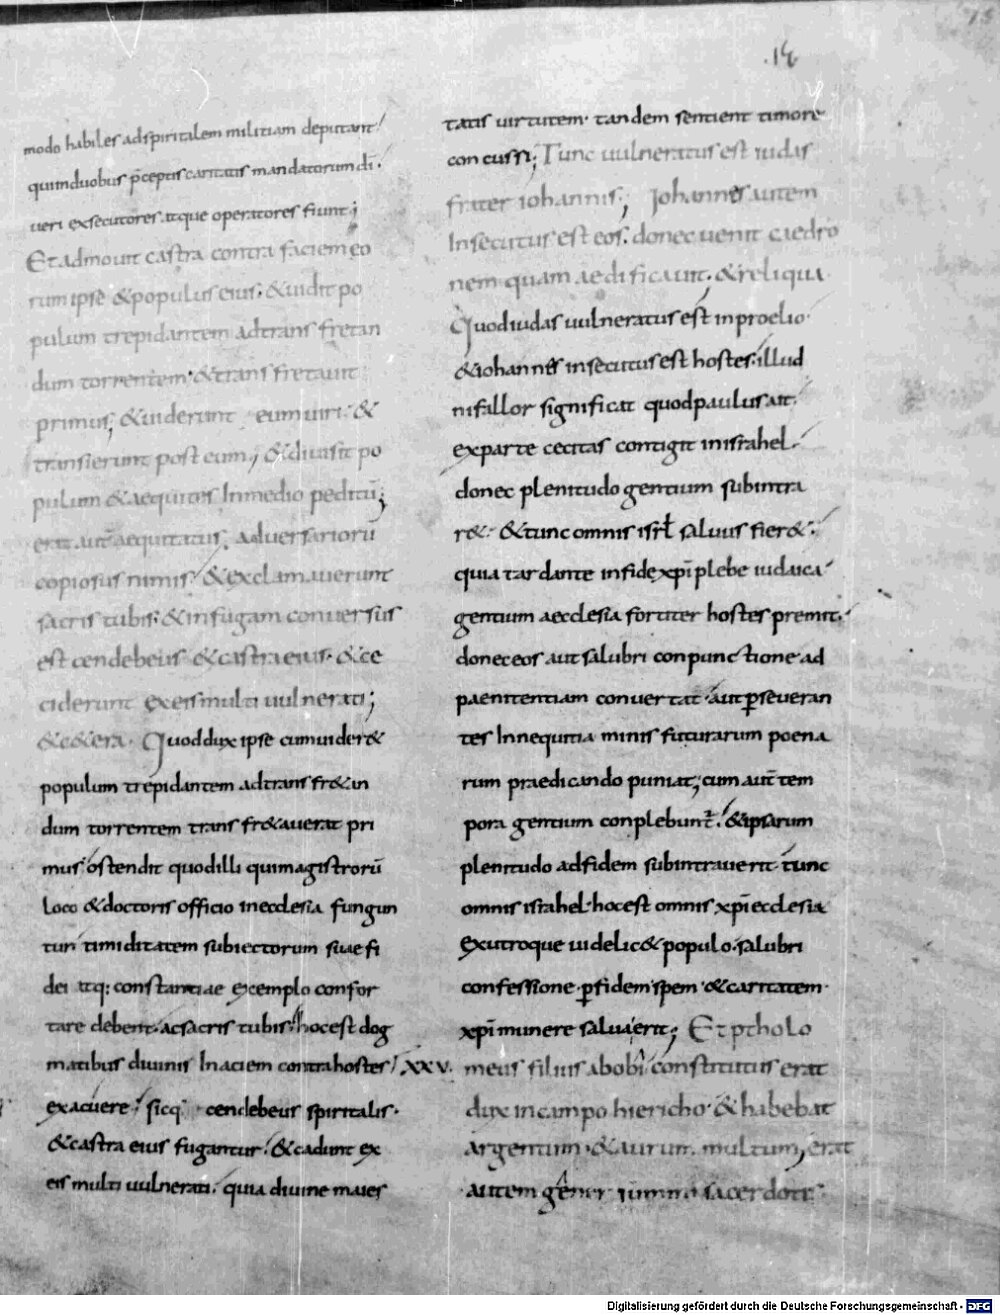 75
.14
modo habiles ad spiritalem militiam deputant
qui in duobus p̄ceptis caritatis mandatorum dī.
ueri exsecutores atque operatores fiunt;
Et admouit castra contra faciem eo
rum ipse & populus eius. & uidit po
pulum trepidantem ad trans fretan
dum torrentem. & trans fretauit
primus; & uiderunt eum uiri. &
transierunt post eum; & diuisit po
pulum & aequites In medio peditū;
erat aut̄ aequitatus. aduersariorū
copiosus nimis. & exclamauerunt
sacris tubis. & in fugam conuersus
est cendebeus & castra eius. & ce
ciderunt ex eis multi uulnerati;
& cetera. Quod dux ipse cum uider&
populum trepidantem ad trans fr&an
dum torrentem trans fr&auerat pri
mus. ostendit quod illi qui magistrorū
loco & doctoris officio in ecclesia fungun
tur timiditatem subiectorum suae fi
dei atq: constantiae exemplo confor
tare debent. ac sacris tubis. hoc est dog
matibus diuinis In aciem contra hostes
exacuere. sicq; cendebeus spiritalis.
& castra eius fugantur. & cadunt ex
eis multi uulnerati. quia diuine maies
tatis uirtutem. tandem sentient timore
concussi; Tunc uulneratus est iudas
frater iohannis; Johannes autem
Insecutus est eos. donec uenit caedro
nem quam aedificauit. & reliqua.
Quod iudas uulneratus est in proelio.
& iohannes insecutus est hostes. illud
ni fallor significat quod paulus ait.
ex parte cecitas contigit in israhel.
donec plenitudo gentium subintra
r&. & tunc omnis isrł saluus fier&.
quia tardante in fide xp̄i plebe iudaica
gentium aecclesia fortiter hostes premit.
donec eos aut salubri conpunctione ad
paenitentiam conuertat. aut p̄seueran
tes In nequitia minis futurarum poena
rum praedicando puniat; cum aut̄ tem
pora gentium conplebunt̄. & ipsarum
plenitudo ad fidem subintrauerit. tunc
omnis israhel. hoc est omnis xp̄i ecclesia
ex utroque uidelic& populo. salubri
confessione. p̄ fidem spem & caritatem.
xp̄i munere salua erit; Et ptholo
XXV. meus filius abobi constitutus erat
dux in campo hiericho. & habebat
argentum. & aurum. multum; erat
autem gener summi sacerdotis.
Digitalisierung gefördert durch die Deutsche Forschungsgemeinschaft - DFG